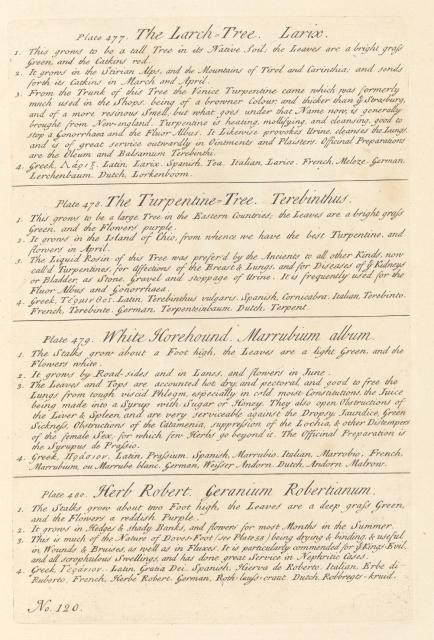 Plate 477. The Larch-Tree. Larix.
1. This grows to be a tall Tree in its Native Soil; the Leaves are a bright grass
Green, and the Catkins red.
2. It grows in the Stirian Alps, and the Mountains of Tirol and Carinthia; and sends
forth its Catkins in March and April.
3. From the Trunk of this Tree the Venice Turpentine came which was formerly
much used in the Shops, being of a browner Colour, and thicker than ye Strasburg,
and of a more resinous Smell, but what goes under that Name now is generally
brought from New-england. Turpentine is heating, mollifying, and cleansing, good to
stop a Gonorrhaea and the Fluor Albus. It Likewise provokes Urine, cleanses the Lungs,
and is of great service outwardly in Ointments and Plaisters. Officinal Preparations
are the Oleum and Balsamum Terebinth:
4. Greek, Λάριξ. Latin, Larix. Spanish, Tea. Italian, Larice. French, Meleze. German,
Lerchenbaum. Dutch, Lorkenboom.
Plate 478. The Turpentine-Tree. Terebinthus.
1. This grows to be a large Tree in the Eastern Countries; the Leaves are a bright grass
Green, and the Flowers purple.
2. It grows in the Island of Chio, from whence we have the best Turpentine, and
flowers in April.
3. The Liquid Rosin of this Tree was prefer'd by the Ancients to all other Kinds, now
call'd Turpentines, for Affections of the Breast & Lungs, and for Diseases of ye Kidneys
or Bladder, as Stone, Gravel and stoppage of Urine. It is frequently used for the
Fluor Albus and Gonorrhaea.
4. Greek, Latin, Terebinthus vulgaris. Spanish, Cornicabra. Italian, Terebinto.
French, Terebinte. German, Terpentinbaum. Dutch, Terpent.
Plate 479. White Horehound. Marrubium album.
1. The Stalks grow about a Foot high, the Leaves are a light Green, and the
Flowers white.
2. It grows by Road-sides and in Lanes, and flowers in June.
3. The Leaves and Tops are accounted hot, dry, and pectoral, and good to free the
Lungs from tough viscid Phlegm, especially in old moist Constitutions, the Juice
being made into a Syrup with Sugar or Honey. They also open Obstructions of
the Liver & Spleen, and are very serviceable against the Dropsy, Jaundice, Green
Sickness, Obstructions of the Catamenia, suppression of the Lochia, & other Distempers
of the female Sex, for which few Herbs go beyond it. The Officinal Preparation is
the Syrupus de Prassio.
4. Greek, Latin, Prassium. Spanish, Marrubio. Italian, Marrobio. French,
Marrubium, ou Marrube blanc. German, Weisser Andorn. Dutch, Andorn Malrow.
Plate 480. Herb Robert. Geranium Robertianum.
1. The Stalks grow about two Foot high, the Leaves are a deep grass Green,
and the Flowers a reddish Purple.
2. It grows in Hedges & shady Banks, and flowers for most Months in the Summer.
3. This is much of the Nature of Doves-Foot (see Plate 58) being drying & binding, & useful
in Wounds & Bruises, as well as in Fluxes. It is particularly commended for ye Kings-Evil,
and all scrophulous Swellings, and has done great Service in Nephritic Cases.
4. Greek, Latin, Gratia Dei. Spanish, Hierva de Roberto. Italian, Erbe di
Ruberto. French, Herbe Robert. German, Dutch, Robbregts-kruid.
No. 120.